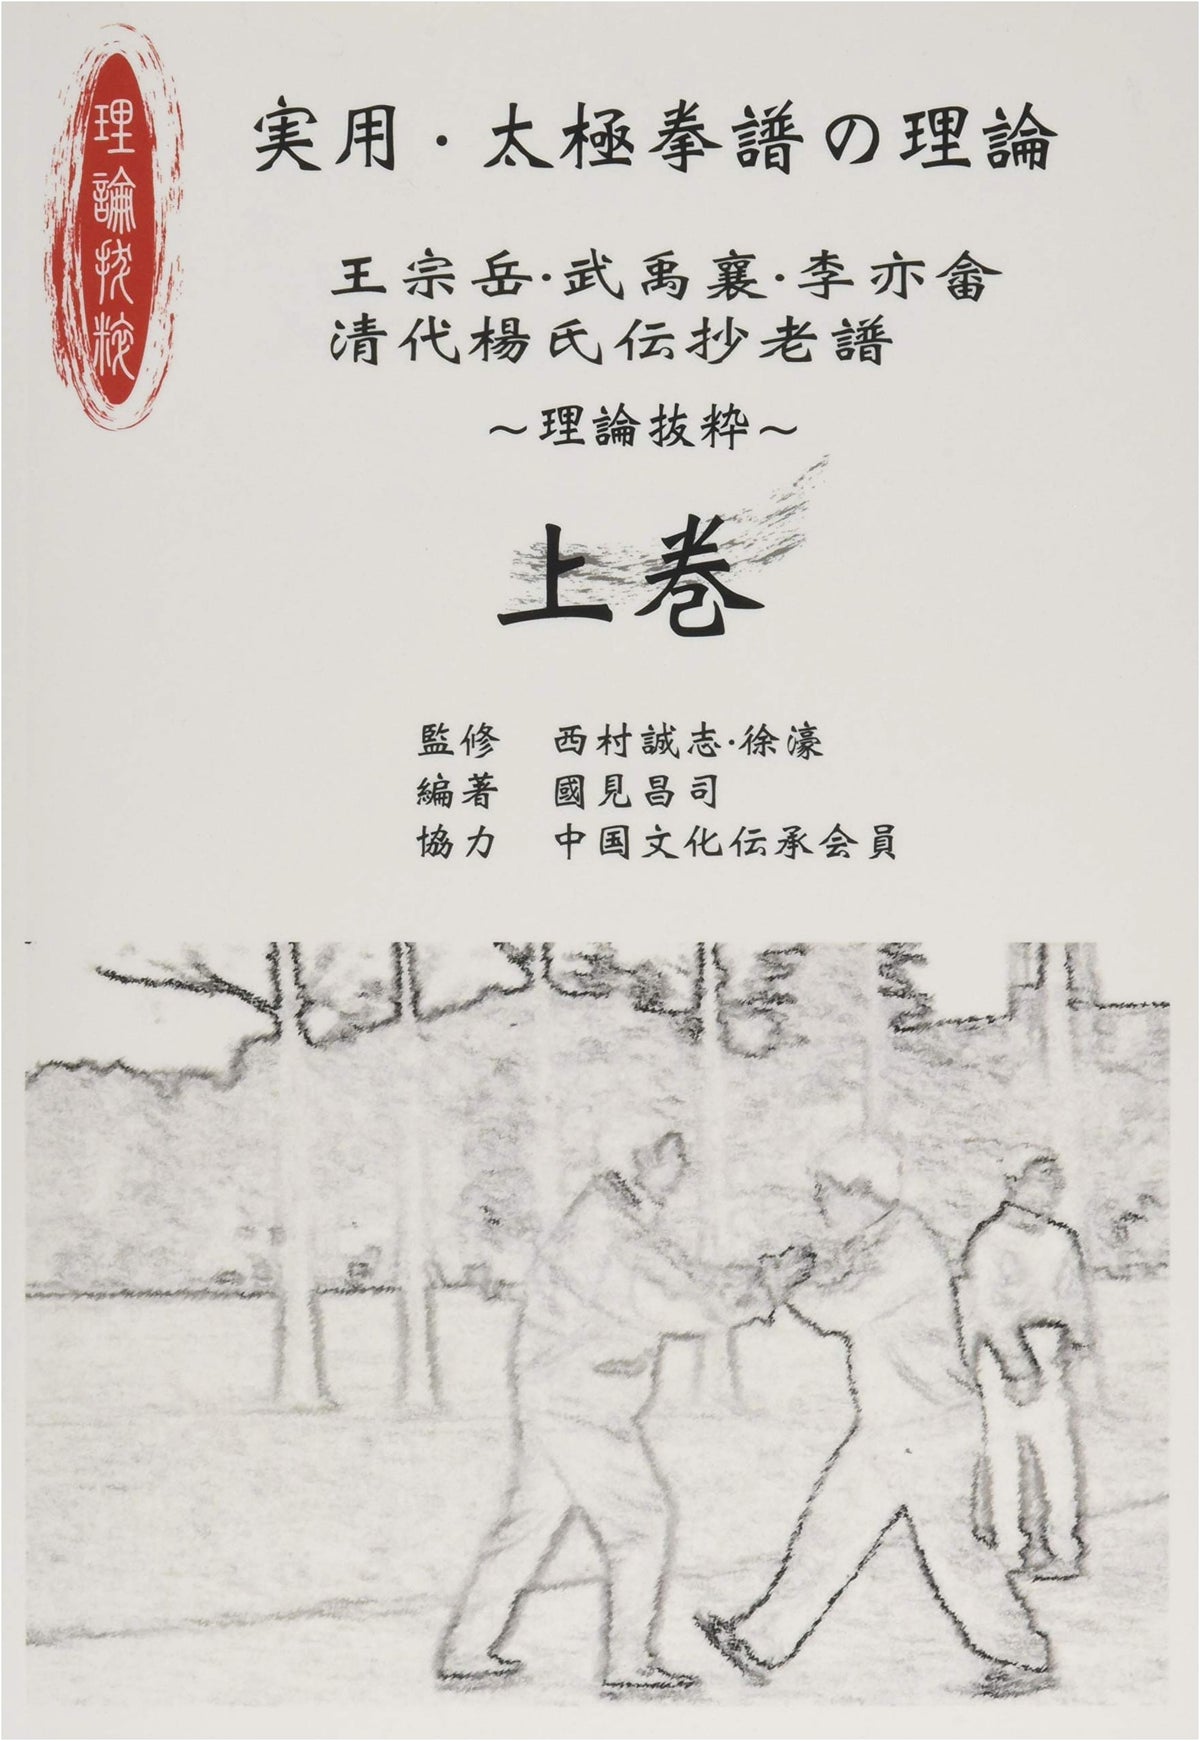 理論抜粋
実用・太極拳譜の理論
王宗岳・武禹襄・李亦畬
清代楊氏伝抄老譜
～理論抜粋～
上巻
監修 西村誠志・徐濠
編著 國見昌司
協力 中国文化伝承会員